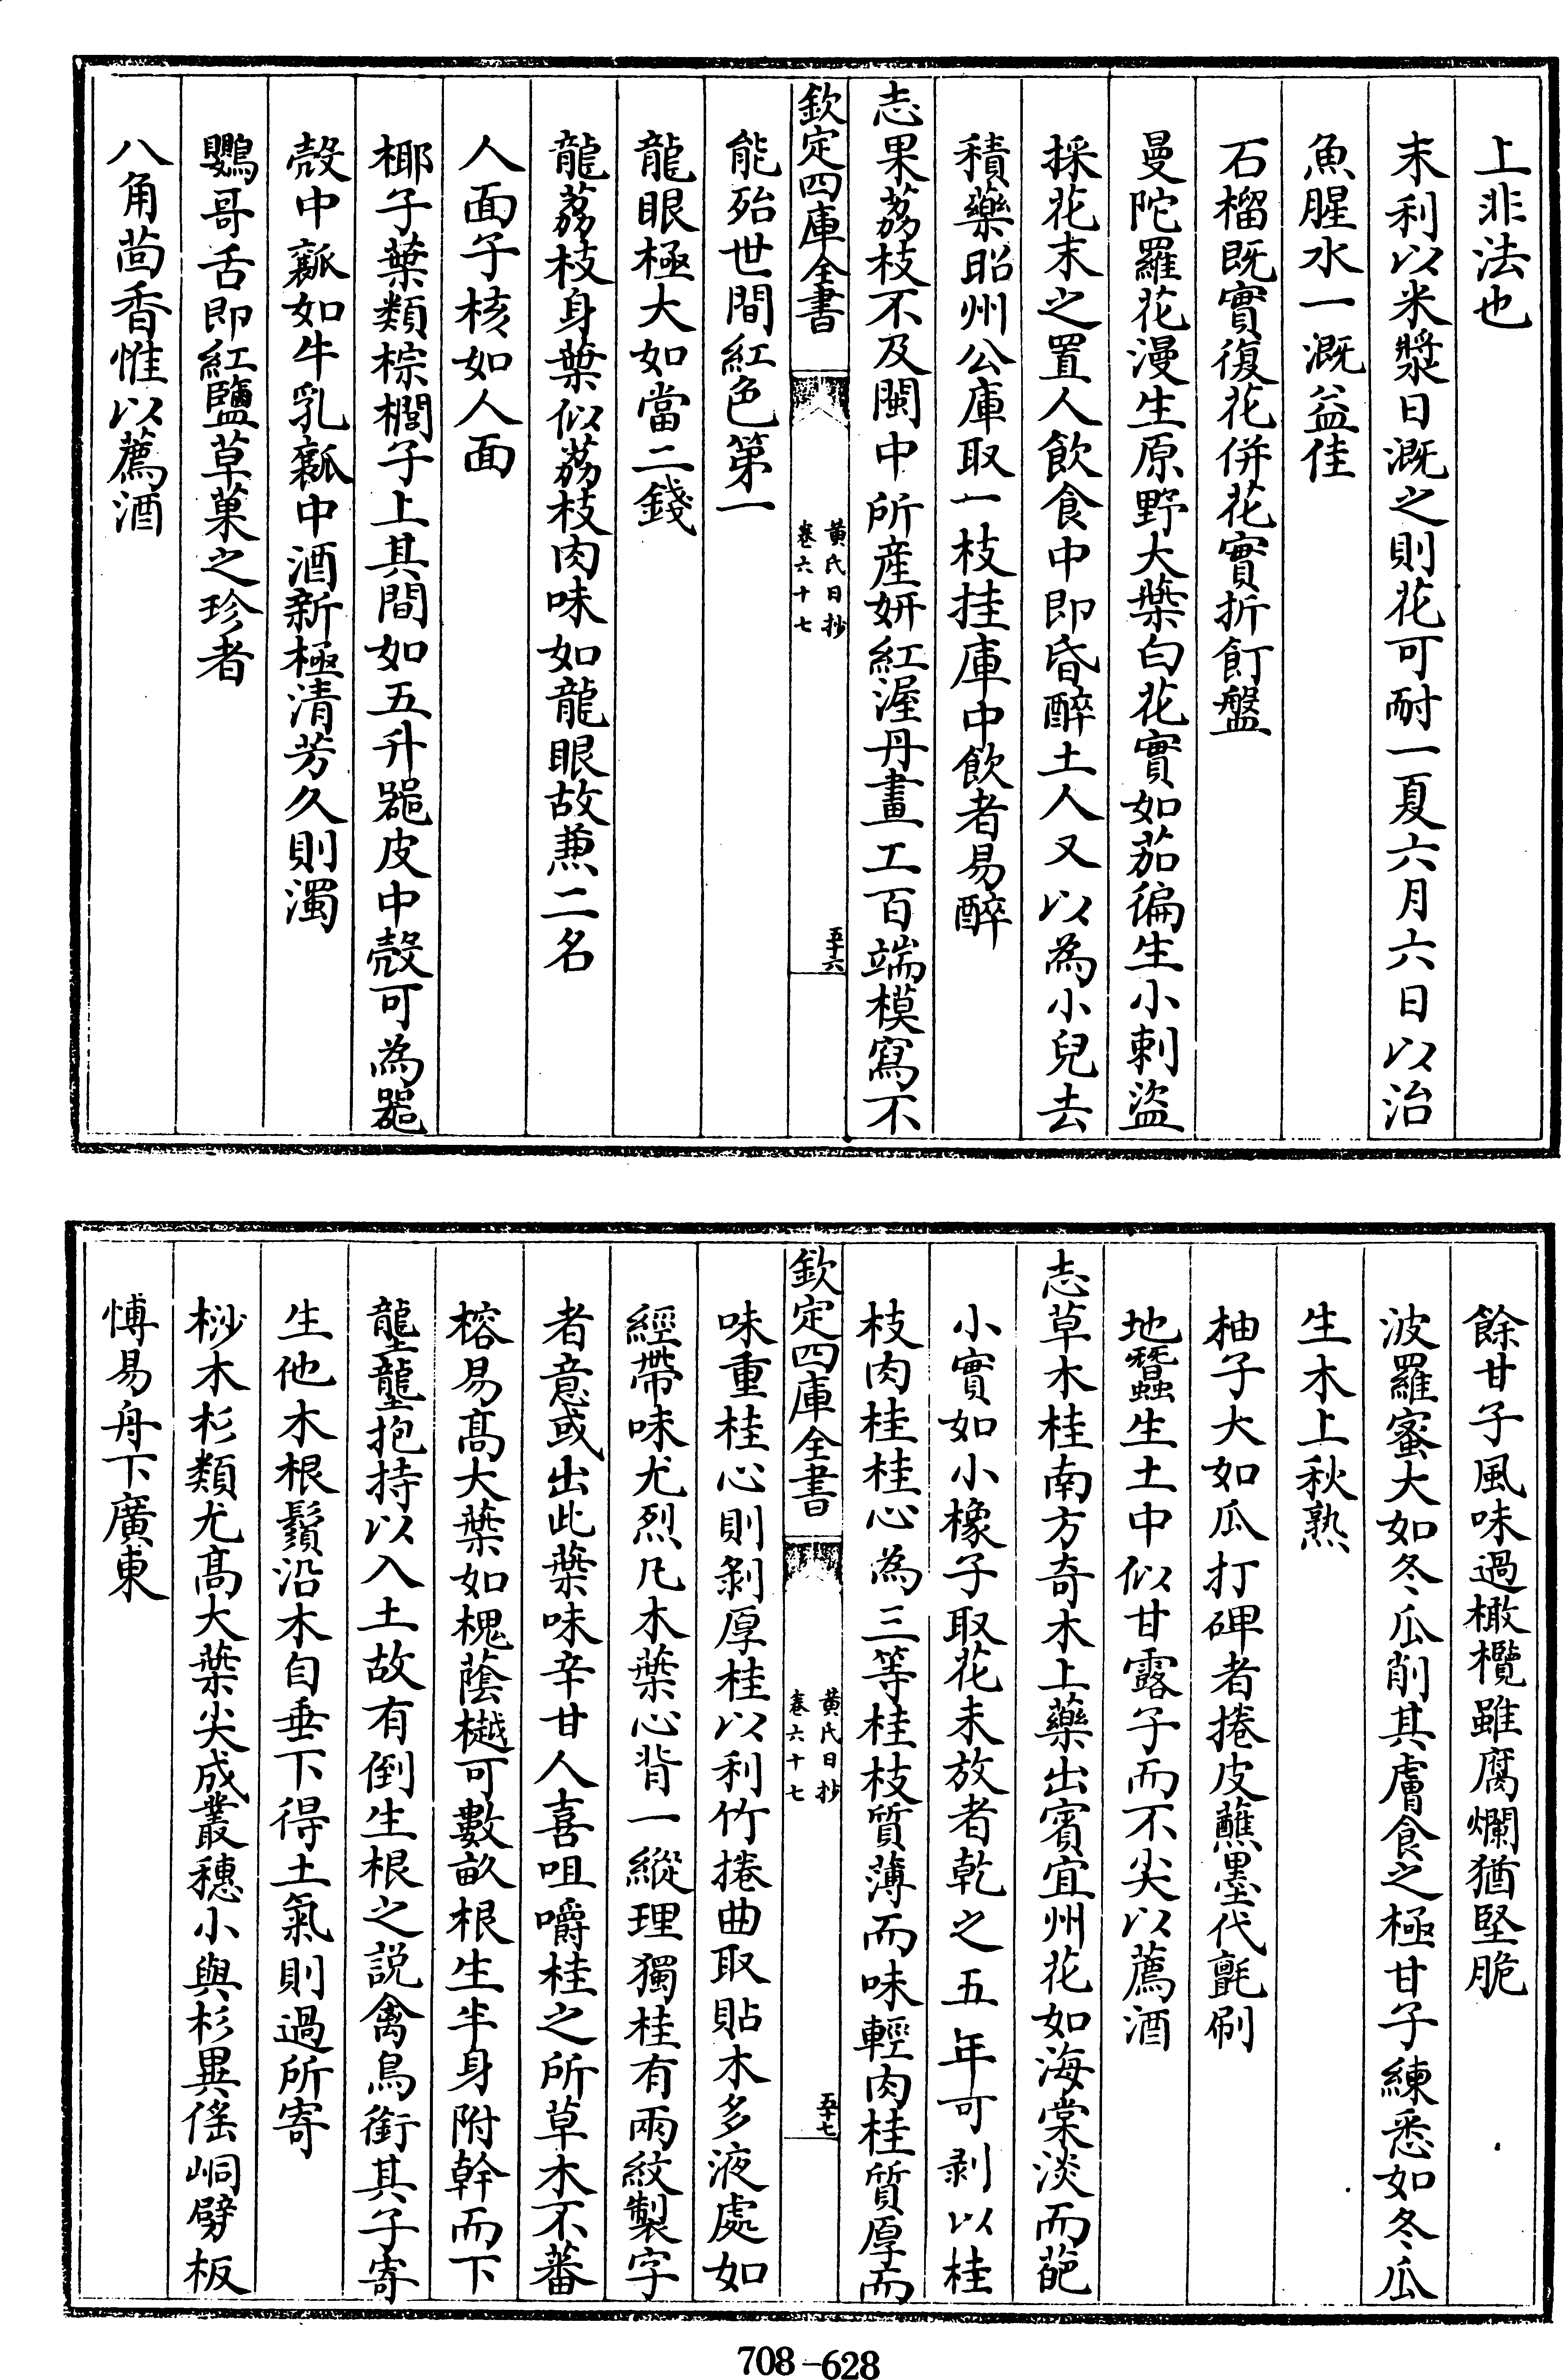 上非法也
末利以米漿日溉之則花可耐一夏六月六日以治
魚腥水一溉益佳
石榴既實復花併花實折飣盤
曼陀羅花漫生原野大葉白花實如茄徧生小刺盜
採花末之置人飲食中即昏醉土人又以為小兒去
積藥昭州公庫取一枝挂庫中飲者易醉
志果荔枝不及閩中所産妍紅渥丹畫工百端模寫不
欽定四庫全書
黄氏日抄
卷六十七
五十六
能殆世間紅色第一
龍眼極大如當二錢
龍荔枝身葉似荔枝肉味如龍眼故兼二名
人面子核如人面
椰子葉類棕櫚子上其間如五升器皮中殼可為器
殼中瓤如牛乳瓤中酒新極清芳久則濁
鸚哥舌即紅鹽草菓之珍者
八角茴香惟以薦酒
餘甘子風味過橄欖雖腐爛猶堅脆
波羅蜜大如冬瓜削其膚食之極甘子練悉如冬瓜
生木上秋熟
柚子大如瓜打碑者捲皮蘸墨代氊刷
地蠶生土中似甘露子而不尖以薦酒
志草木桂南方奇木上藥出賓宜州花如海棠淡而葩
小實如小橡子取花未放者乾之五年可剥以桂
枝肉桂桂心為三等桂枝質薄而味輕肉桂質厚而
欽定四庫全書
黄氏日抄
卷六十七
五十七
味重桂心則剝厚桂以利竹捲曲取貼木多液處如
經帶味尤烈凡木葉心背一縱理獨桂有兩紋製字
者意或出此葉味辛甘人喜咀嚼桂之所草木不蕃
榕易髙大葉如槐蔭樾可數畝根生半身附幹而下
壟壟抱持以入土故有倒生根之説禽鳥銜其子寄
生他木根鬚沿木自垂下得土氣則過所寄
桫木杉類尤髙大葉尖成叢穗小與杉異傜峒劈板
愽易舟下廣東
708-628